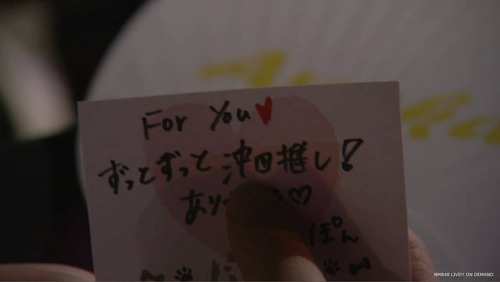 For You♥
ずっとずっと沖田推し!
ぽん
NMB48 LIVE!! ON DEMAND